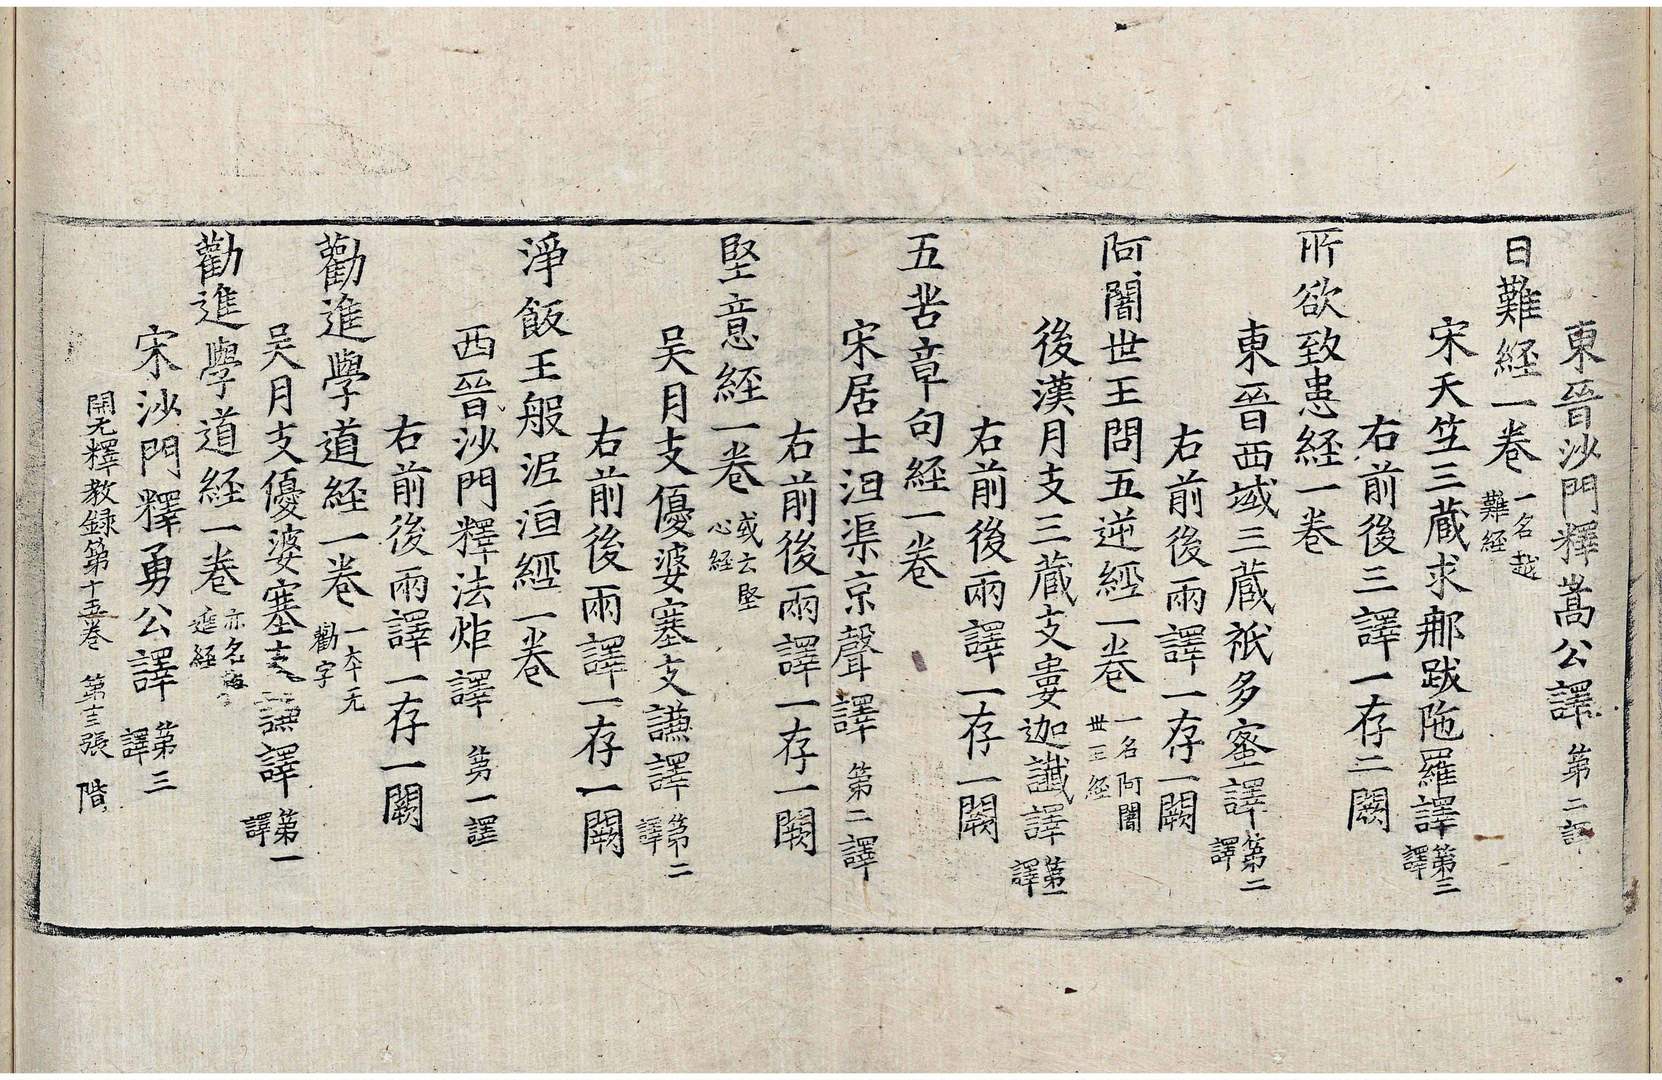 東晉沙門釋嵩公譯 第二譯
日難經一卷 一名越難經
宋天竺三藏求那跋陁羅譯 第三譯
右前後三譯一存二闕
所欲致患經一卷
東晉西域三藏祇多蜜譯 第二譯
右前後兩譯一存一闕
阿闍世王問五逆經一卷 一名阿闍世王經
後漢月支三藏支婁迦讖譯 第一譯
右前後兩譯一存一闕
五苦章句經一卷
宋居士沮渠京聲譯 第二譯
右前後兩譯一存一闕
堅意經一卷 或云堅心經
吳月支優婆塞支謙譯 第二譯
右前後兩譯一存一闕
淨飯王般泥洹經一卷
西晉沙門釋法炬譯 第一譯
右前後兩譯一存一闕
勸進學道經一卷 一本无勸字
吳月支優婆塞支謙譯 第一譯
勸進學道經一卷 亦名進經
宋沙門釋勇公譯 第三譯
開元釋教録第十五卷 第十三張 階